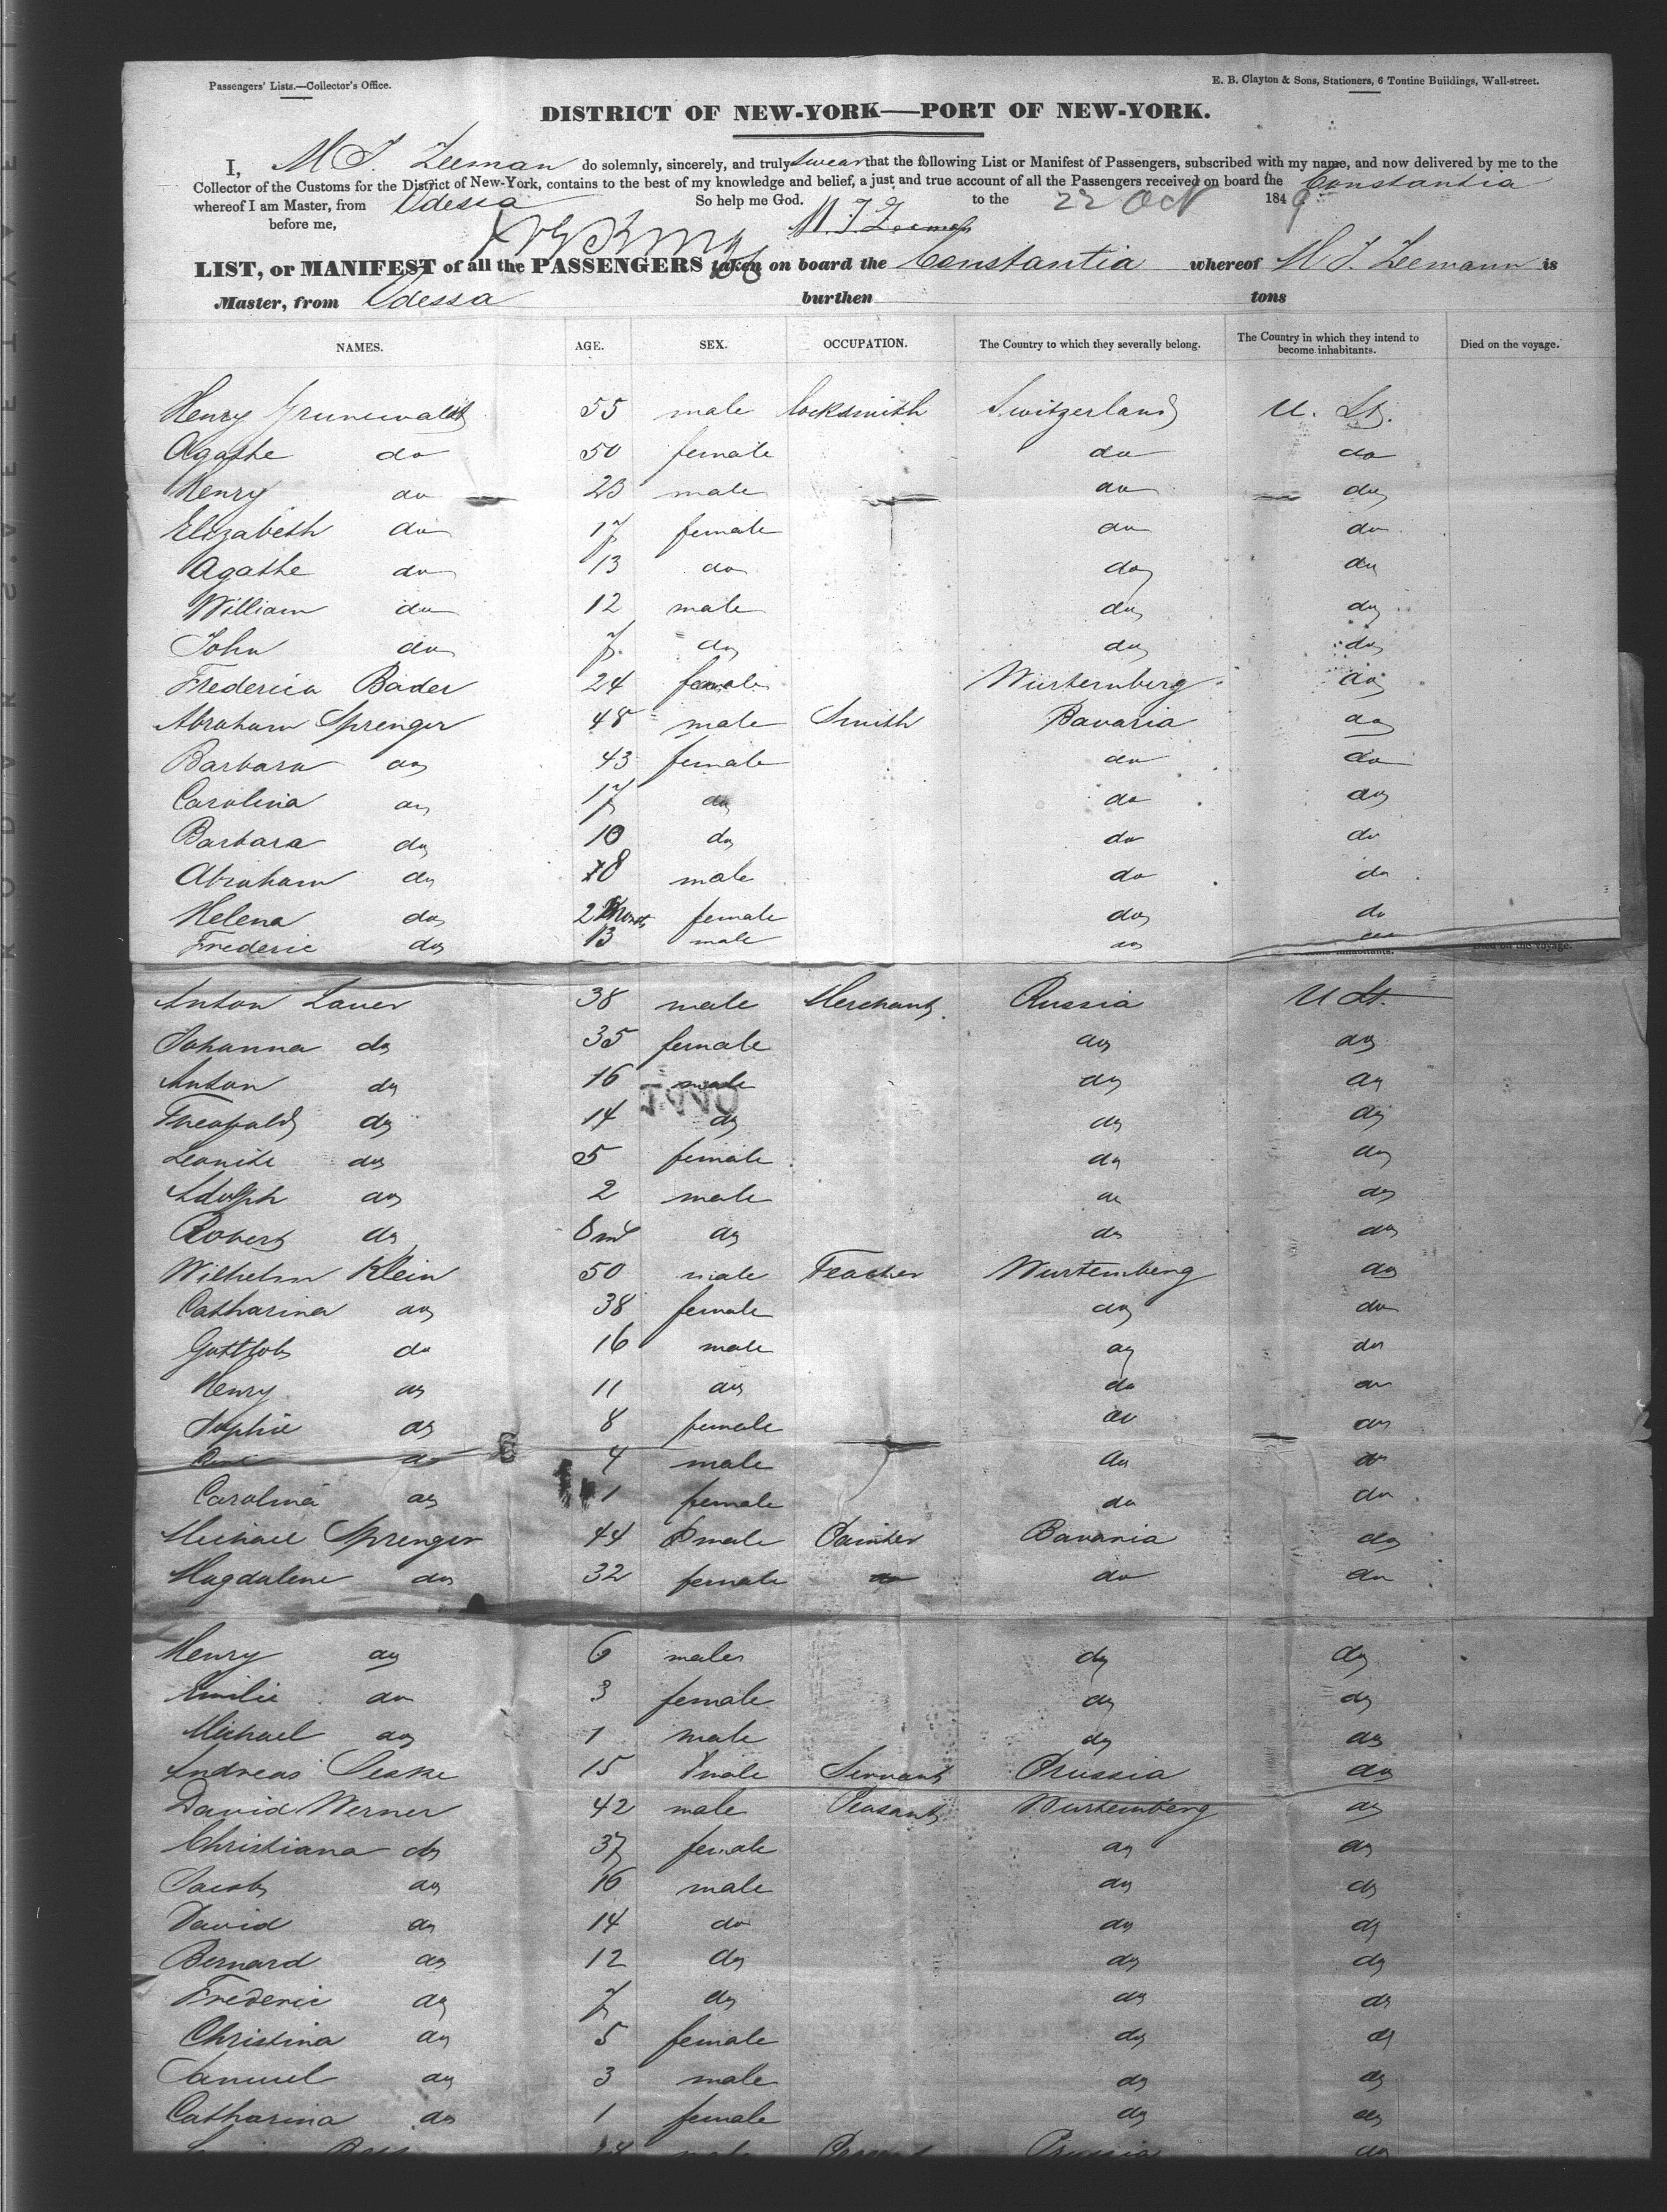 Passengers' Lists.—Collector's Office.
E. B. Clayton & Sons, Stationers, 6 Tontine Buildings, Wall-street.
DISTRICT OF NEW-YORK—PORT OF NEW-YORK.
I, M J. Zeeman do solemnly, sincerely, and truly swear that the following List or Manifest of Passengers, subscribed with my name, and now delivered by me to the
Collector of the Customs for the District of New-York, contains to the best of my knowledge and belief, a just and true account of all the Passengers received on board the Constantia
whereof I am Master, from Odessa So help me God. to the 22 Oct 1849
before me, M. J. Zeeman
LIST, or MANIFEST of all the PASSENGERS taken on board the Constantia whereof M J. Zeemann is
Master, from Odessa burthen tons
NAMES. AGE. SEX. OCCUPATION. The Country to which they severally belong. The Country in which they intend to become inhabitants. Died on the voyage.
Henry Grunewaldt 55 male locksmith Switzerland U. St.
Agathe do 50 female do do
Henry do 23 male do do
Elizabeth do 17 female do do
Agathe do 13 do do do
William do 12 male do do
John do 7 do do do
Frederica Bader 24 female Wurtemberg do
Abraham Sprenger 48 male Smith Bavaria do
Barbara do 43 female do do
Carolina do 17 do do do
Barbara do 10 do do do
Abraham do 8 male do do
Helena do 2 female do do
Frederic do 13 male do do
inhabitants. Died on the voyage.
Anton Lauer 38 male Merchant Russia U St.
Johanna do 35 female do do
Anton do 16 male do do
Theobald do 14 do do do
Leonite do 5 female do do
Adolph do 2 male do do
Robert do 8 m do do do
Wilhelm Klein 50 male Teacher Wurtemberg do
Catharina do 38 female do do
Gottlob do 16 male do do
Henry do 11 do do do
Sophie do 8 female do do
do 4 male do do
Carolina do 1 female do do
Michael Sprenger 44 male Painter Bavaria do
Magdalene do 32 female do do
Henry do 6 male do do
Emilie do 3 female do do
Michael do 1 male do do
Andreas 15 male Servant Prussia do
David Werner 42 male Peasant Wurtemberg do
Christiana do 37 female do do
Jacob do 16 male do do
David do 14 do do do
Bernard do 12 do do do
Frederic do 7 do do do
Christina do 5 female do do
Samuel do 3 male do do
Catharina do 1 female do do